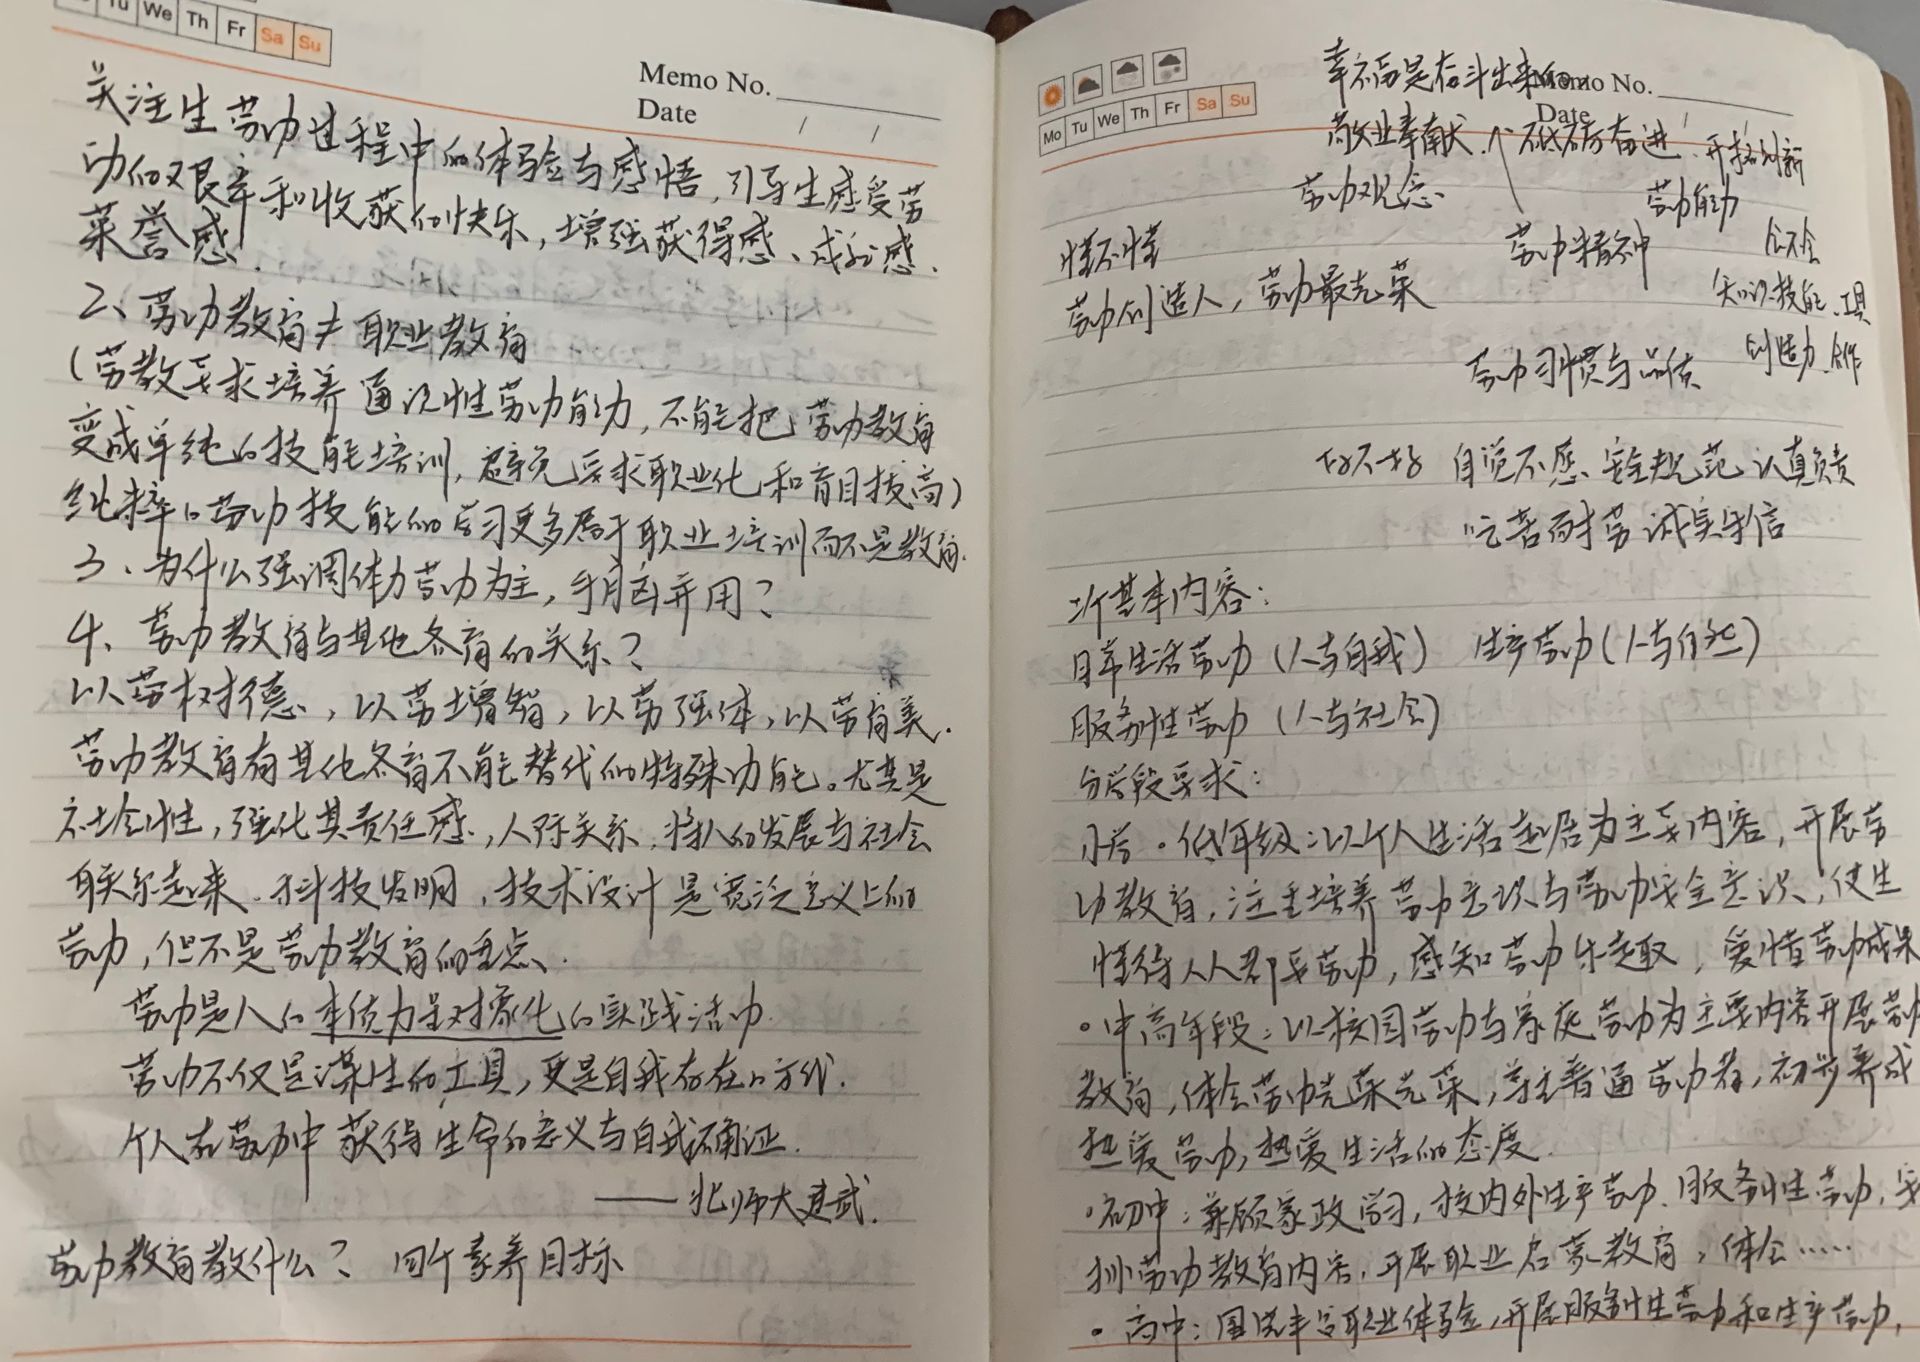 Tu We Th Fr Sa Su
Memo No.
Date / /
关注生劳动过程中的体验与感悟，引导生感受劳
动的艰辛和收获的快乐，增强获得感、成就感、
荣誉感．
2、劳动教育≠职业教育
(劳教要求培养通识性劳动能力，不能把劳动教育
变成单纯的技能培训，避免要求职业化和盲目拔高)
纯粹的劳动技能的学习更多属于职业培训而不是教育．
3、为什么强调体力劳动为主，手脑并用？
4、劳动教育与其他各育的关系？
以劳树德，以劳增智，以劳强体，以劳育美．
劳动教育有其他各育不能替代的特殊功能。尤其是
社会性，强化其责任感，人际关系，将人的发展与社会
联系起来．科技发明，技术设计是宽泛意义上的
劳动，但不是劳动教育的重点．
劳动是人的本质力量对象化的实践活动
劳动不仅是谋生的工具，更是自我存在的方式．
个人在劳动中获得生命的意义与自我确证．
——北师大 武．
劳动教育教什么？ 四个素养目标
幸福是奋斗出来的
Memo No.
Mo Tu We Th Fr Sa Su
Date / /
敬业奉献．砥砺奋进．开拓创新
劳动观念 劳动能力
懂不懂 劳动精神 会不会
劳动创造人，劳动最光荣 知识、技能、工具
劳动习惯与品质 创造力 合作
好不好 自觉不愿、安全规范 认真负责
吃苦耐劳 诚实守信
三个基本内容：
日常生活劳动（人与自我） 生产劳动（人与自然）
服务性劳动（人与社会）
分学段要求：
小学·低年级：以个人生活起居为主要内容，开展劳
动教育，注重培养劳动意识与劳动安全意识，使生
懂得人人都要劳动，感知劳动乐趣，爱惜劳动成果
·中高年段：以校园劳动与家庭劳动为主要内容开展劳动
教育，体会劳动光荣光荣，尊重普通劳动者，初步养成
热爱劳动，热爱生活的态度．
·初中：兼顾家政学习，校内外生产劳动．服务性劳动，安
排劳动教育内容，开展职业启蒙教育，体会……
·高中：围绕丰富职业体验，开展服务性劳动和生产劳动，